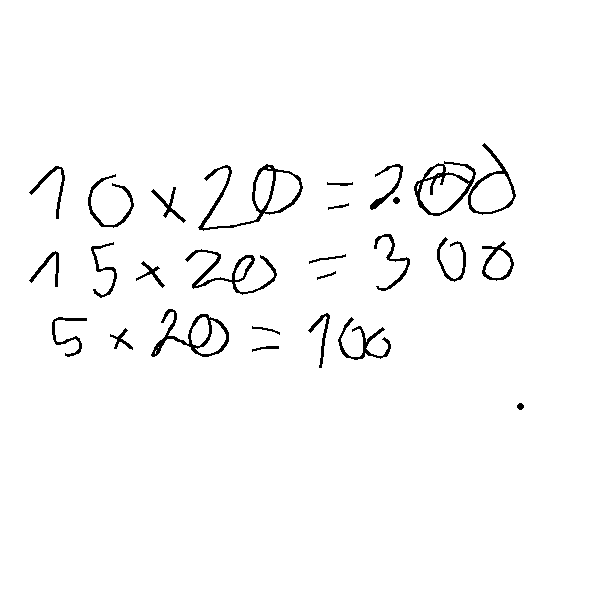 10 x 20 = 200
15 x 20 = 300
5 x 20 = 100